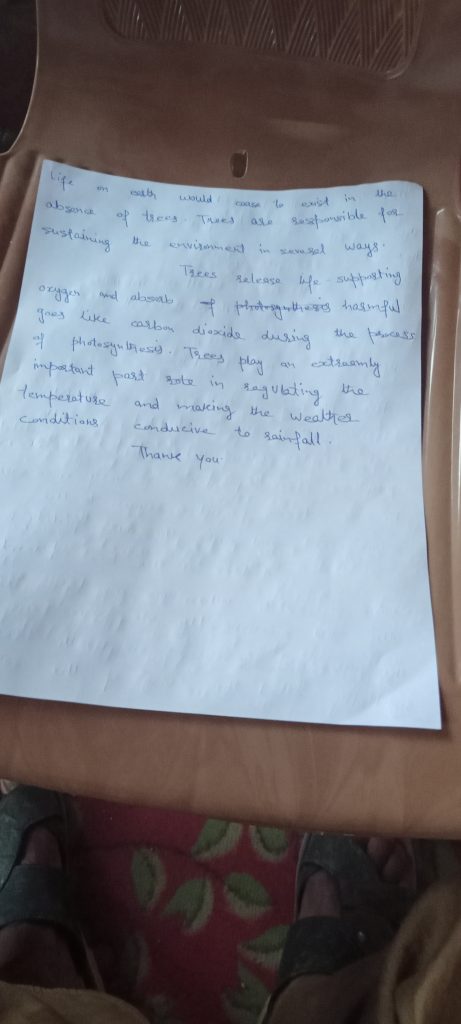 Life on earth would cease to exist in the
absence of trees. Trees are responsible for
sustaining the environment in several ways.
Trees release life-supporting
oxygen and absorb of photosynthesis harmful
gases like carbon dioxide during the process
of photosynthesis. Trees play an extreamly
important part role in regulating the
temperature and making the weather
conditions conducive to rainfall.
Thank you